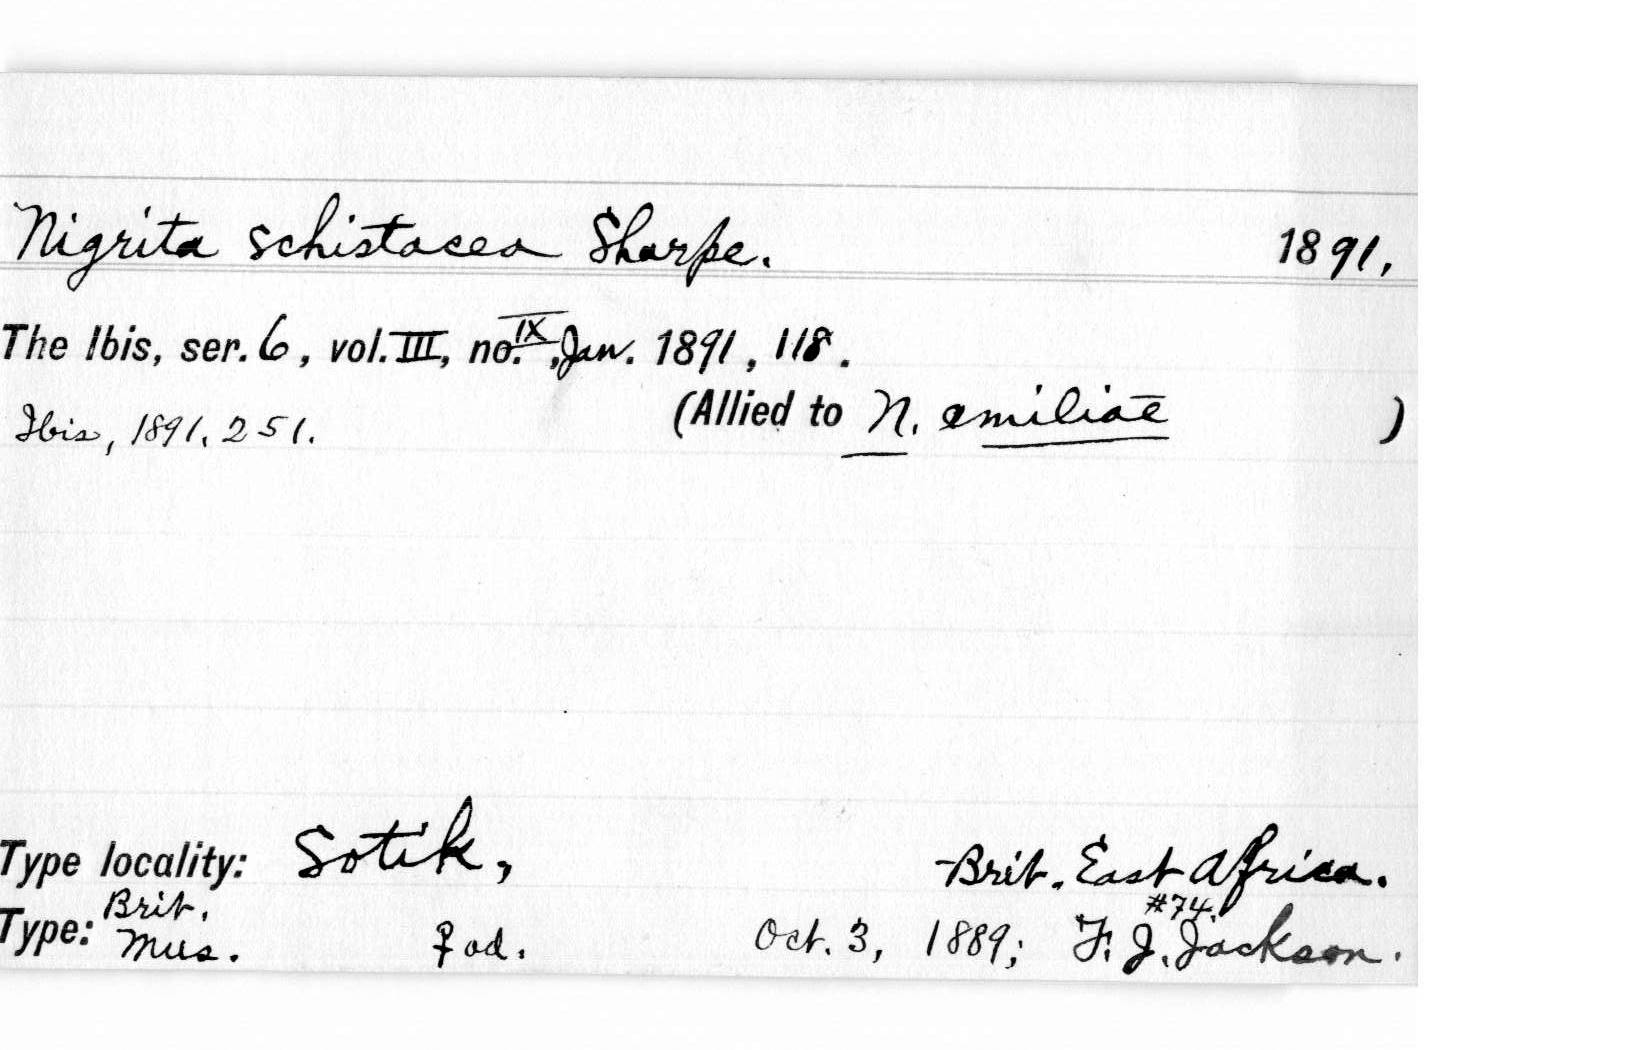 Nigrita schistacea Sharpe. 1891,
The Ibis, ser. 6, vol. III, no. IX, Jan. 1891, 118.
(Allied to N. emiliae )
Ibis, 1891, 251.
Type locality: Sotik, Brit. East Africa.
Type: Brit. Mus. ♀ ad. Oct. 3, 1889; #74. F. J. Jackson.